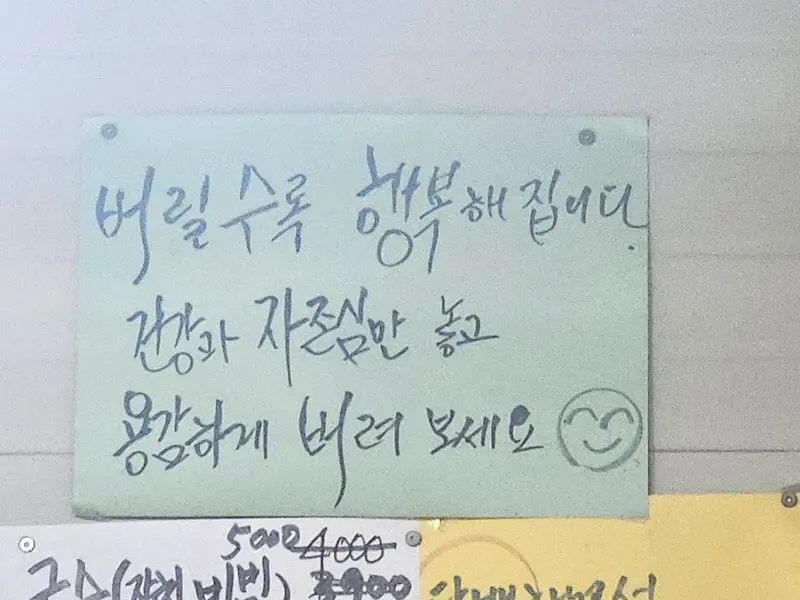 버릴수록 행복해집니다.
건강과 자존심만 놓고
용감하게 버려 보세요
5000 4000
국수(잔치,비빔)